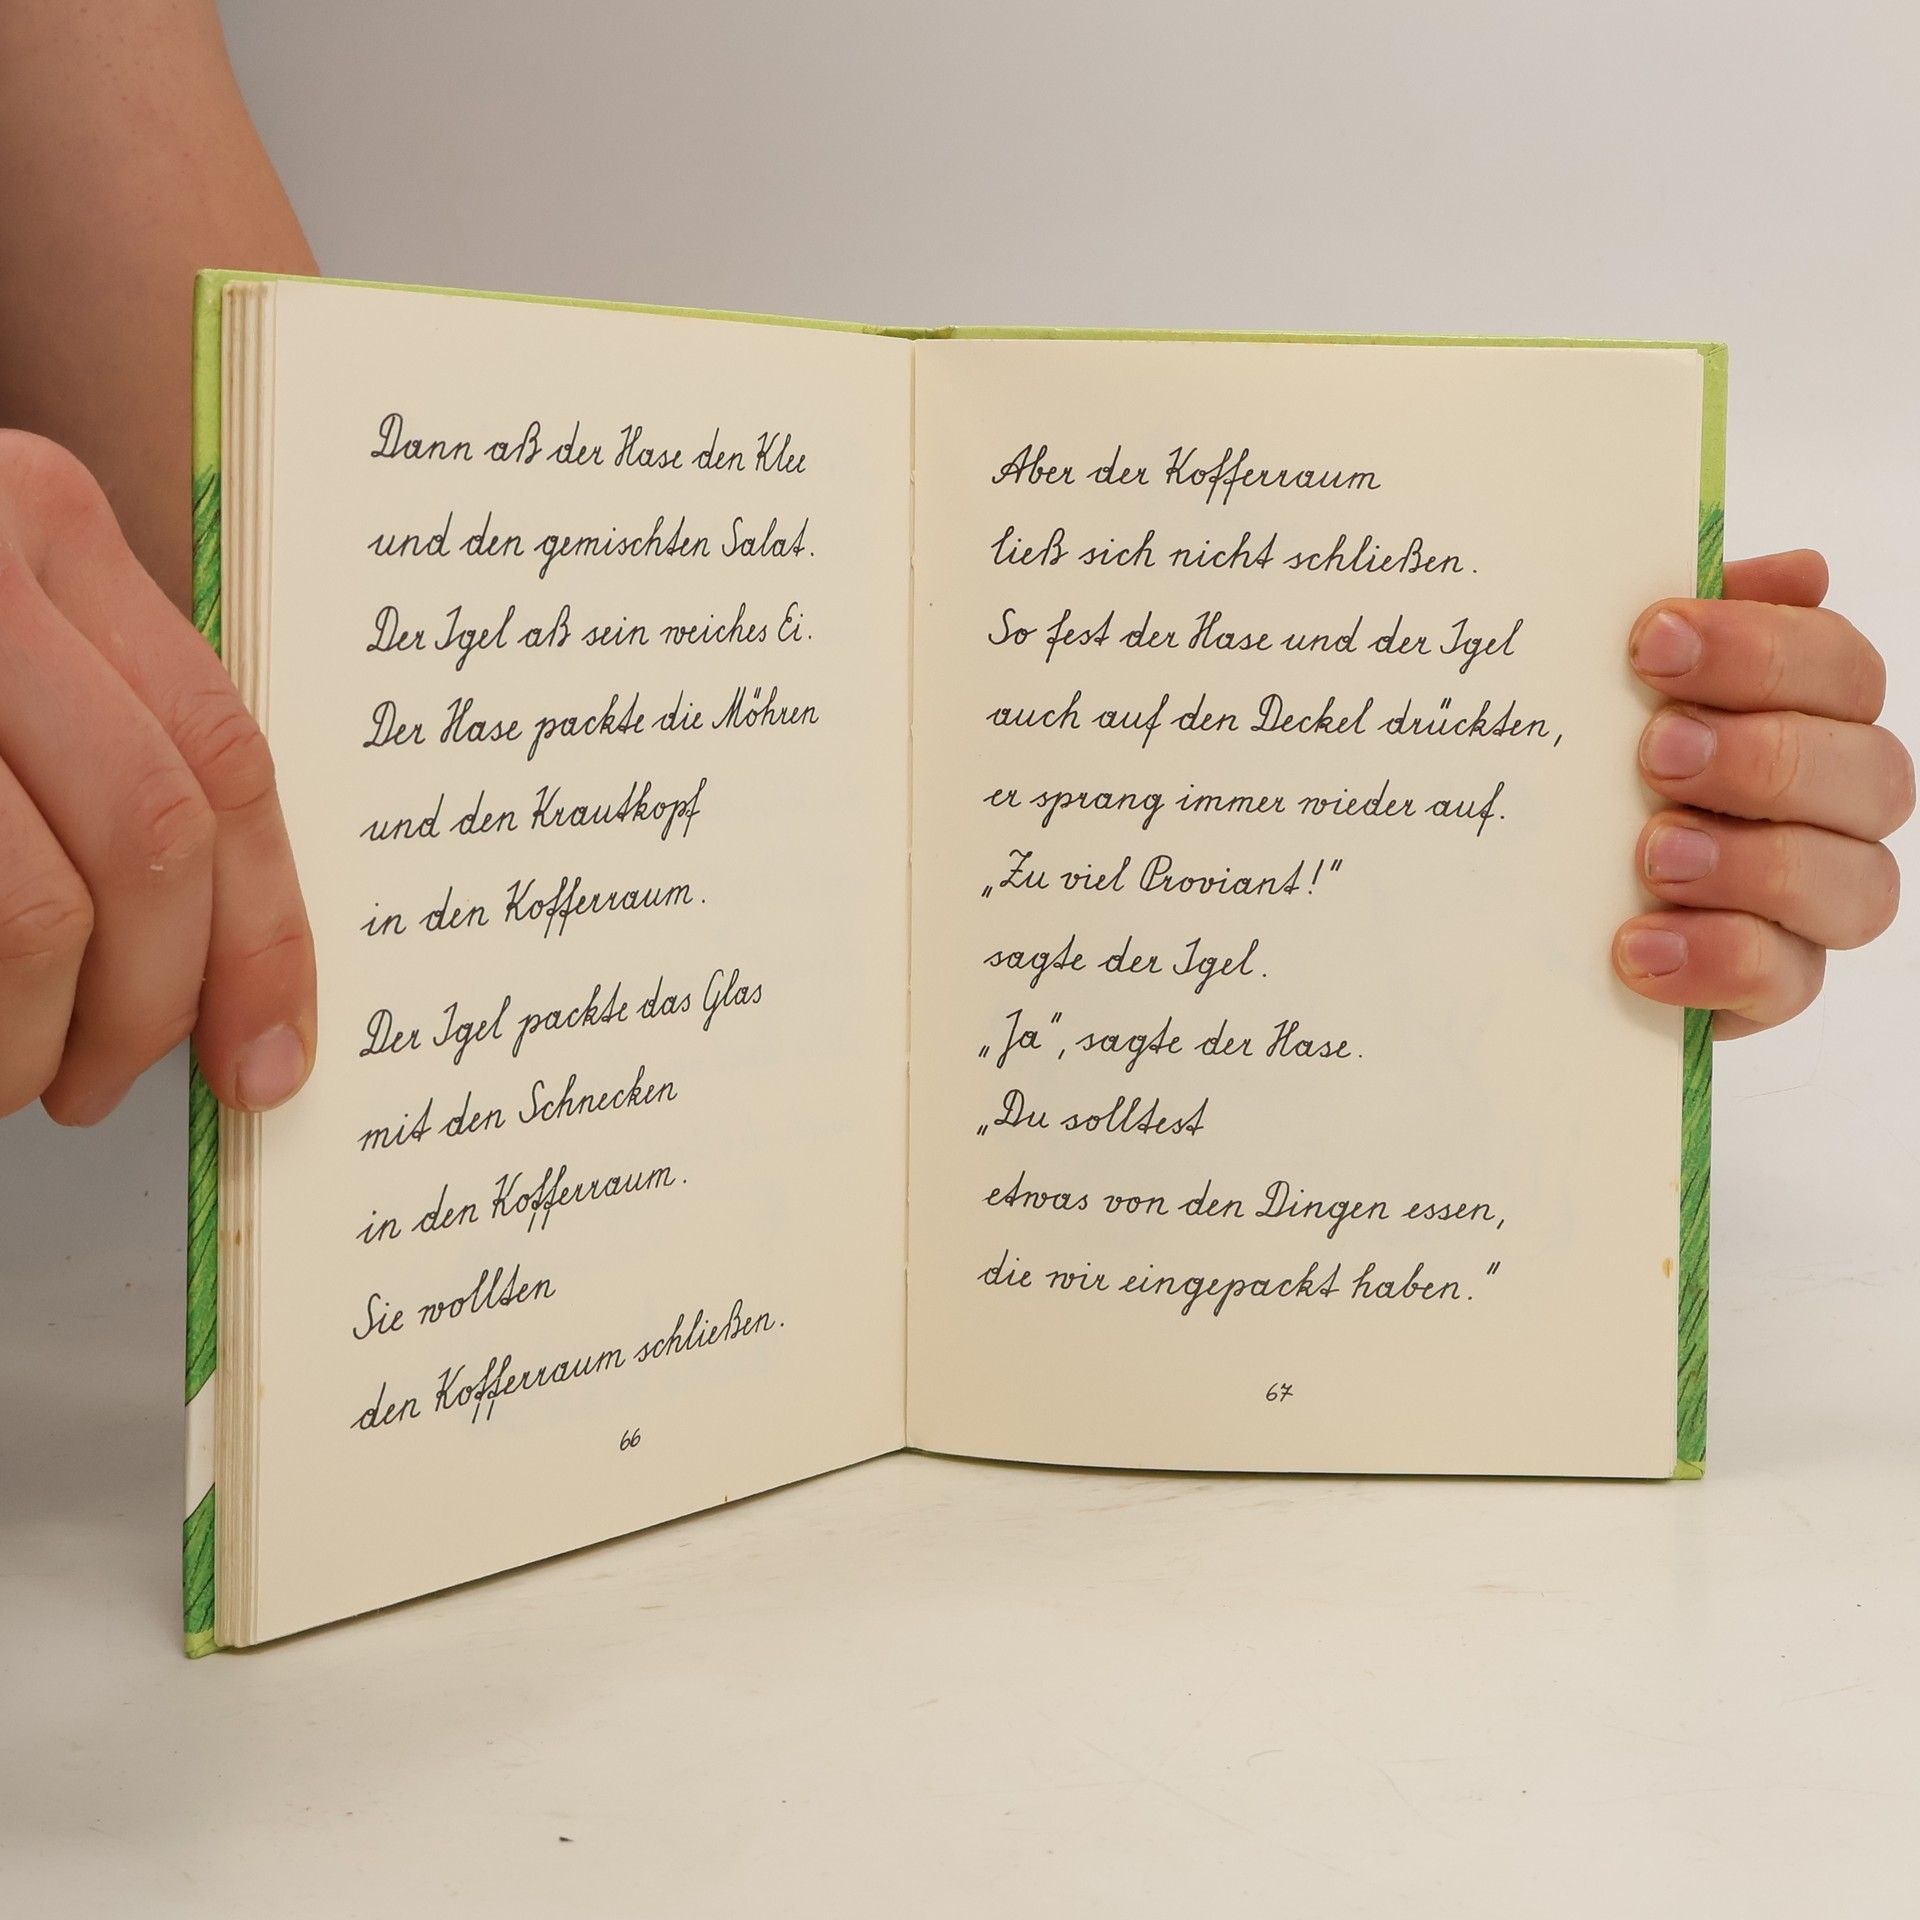 Dann aß der Hase den Klee
und den gemischten Salat.
Der Igel aß sein weiches Ei.
Der Hase packte die Möhren
und den Krautkopf
in den Kofferraum.
Der Igel packte das Glas
mit den Schnecken
in den Kofferraum.
Sie wollten
den Kofferraum schließen.
66
Aber der Kofferraum
ließ sich nicht schließen.
So fest der Hase und der Igel
auch auf den Deckel drückten,
er sprang immer wieder auf.
„Zu viel Proviant!"
sagte der Igel.
„Ja", sagte der Hase.
„Du solltest
etwas von den Dingen essen,
die wir eingepackt haben."
67